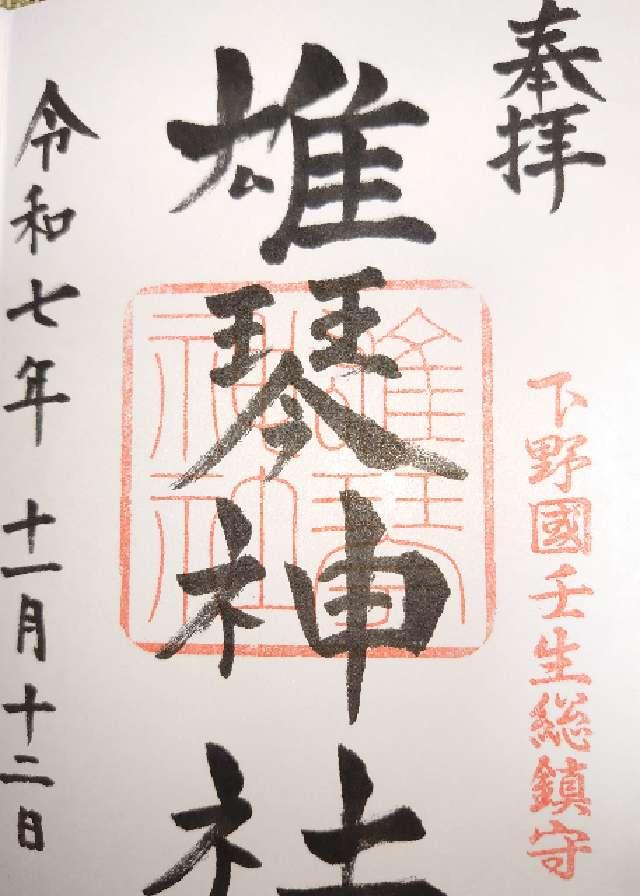 奉拝
下野國壬生総鎮守
雄琴神社
雄琴神社
令和七年十一月十二日